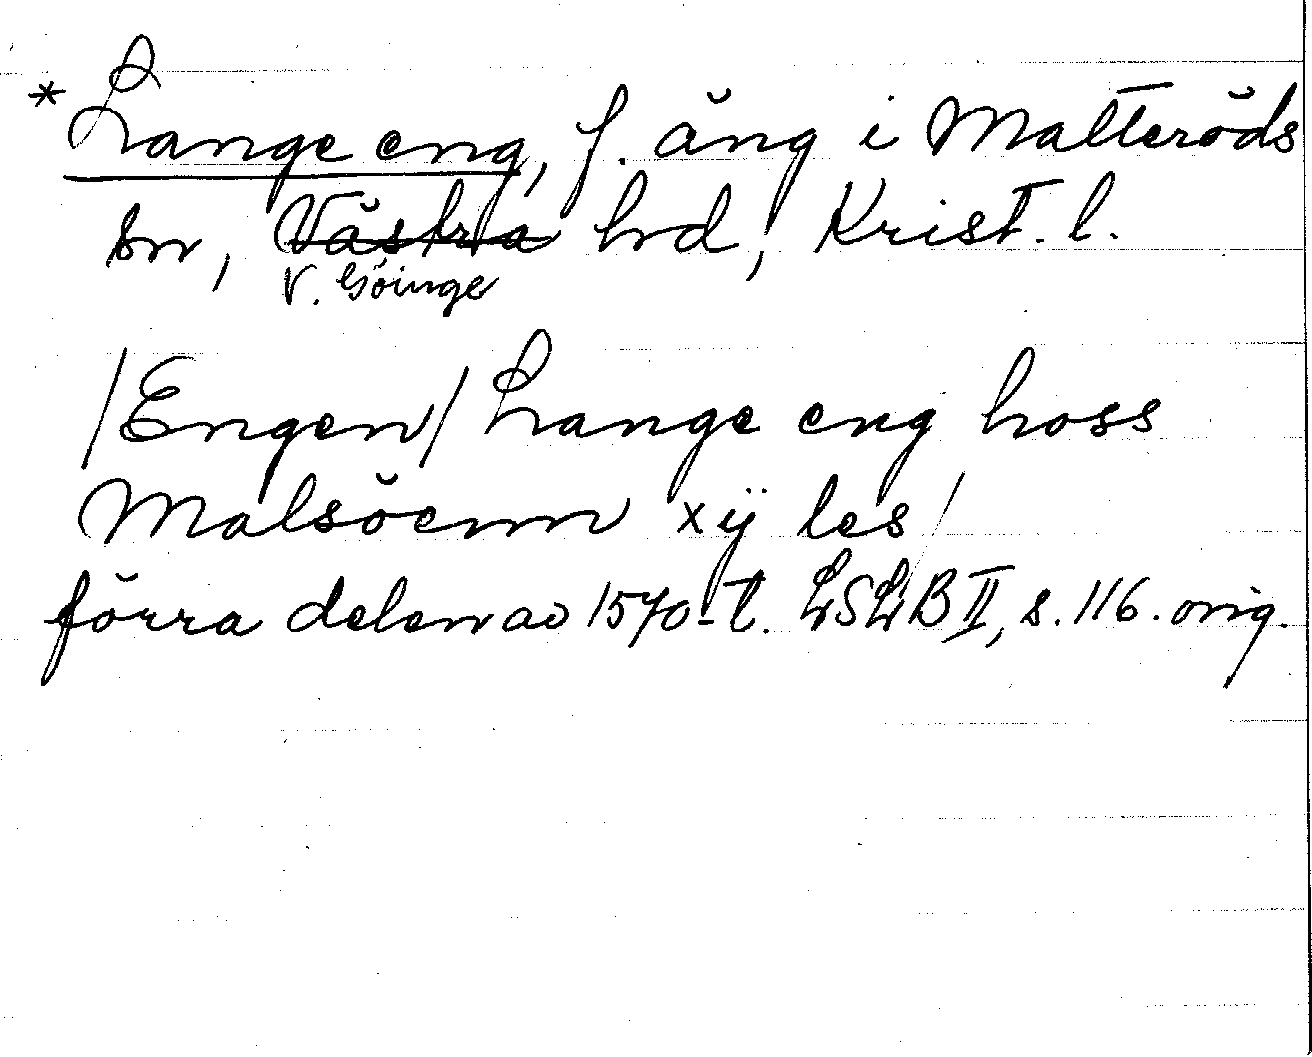 *Lange eng, f. äng i Matteröds
sn, Västra hrd, Krist. l.
V. Göinge
/Engen/ Lange eng hoss
Malsöenn xÿ les /
förra delen av 1570-t. LSLB II, s. 116. orig.